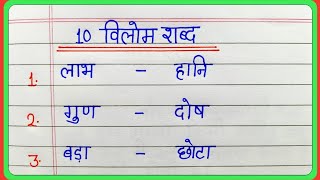 10 विलोम शब्द
1. लाभ - हानि
2. गुण - दोष
3. बड़ा - छोटा